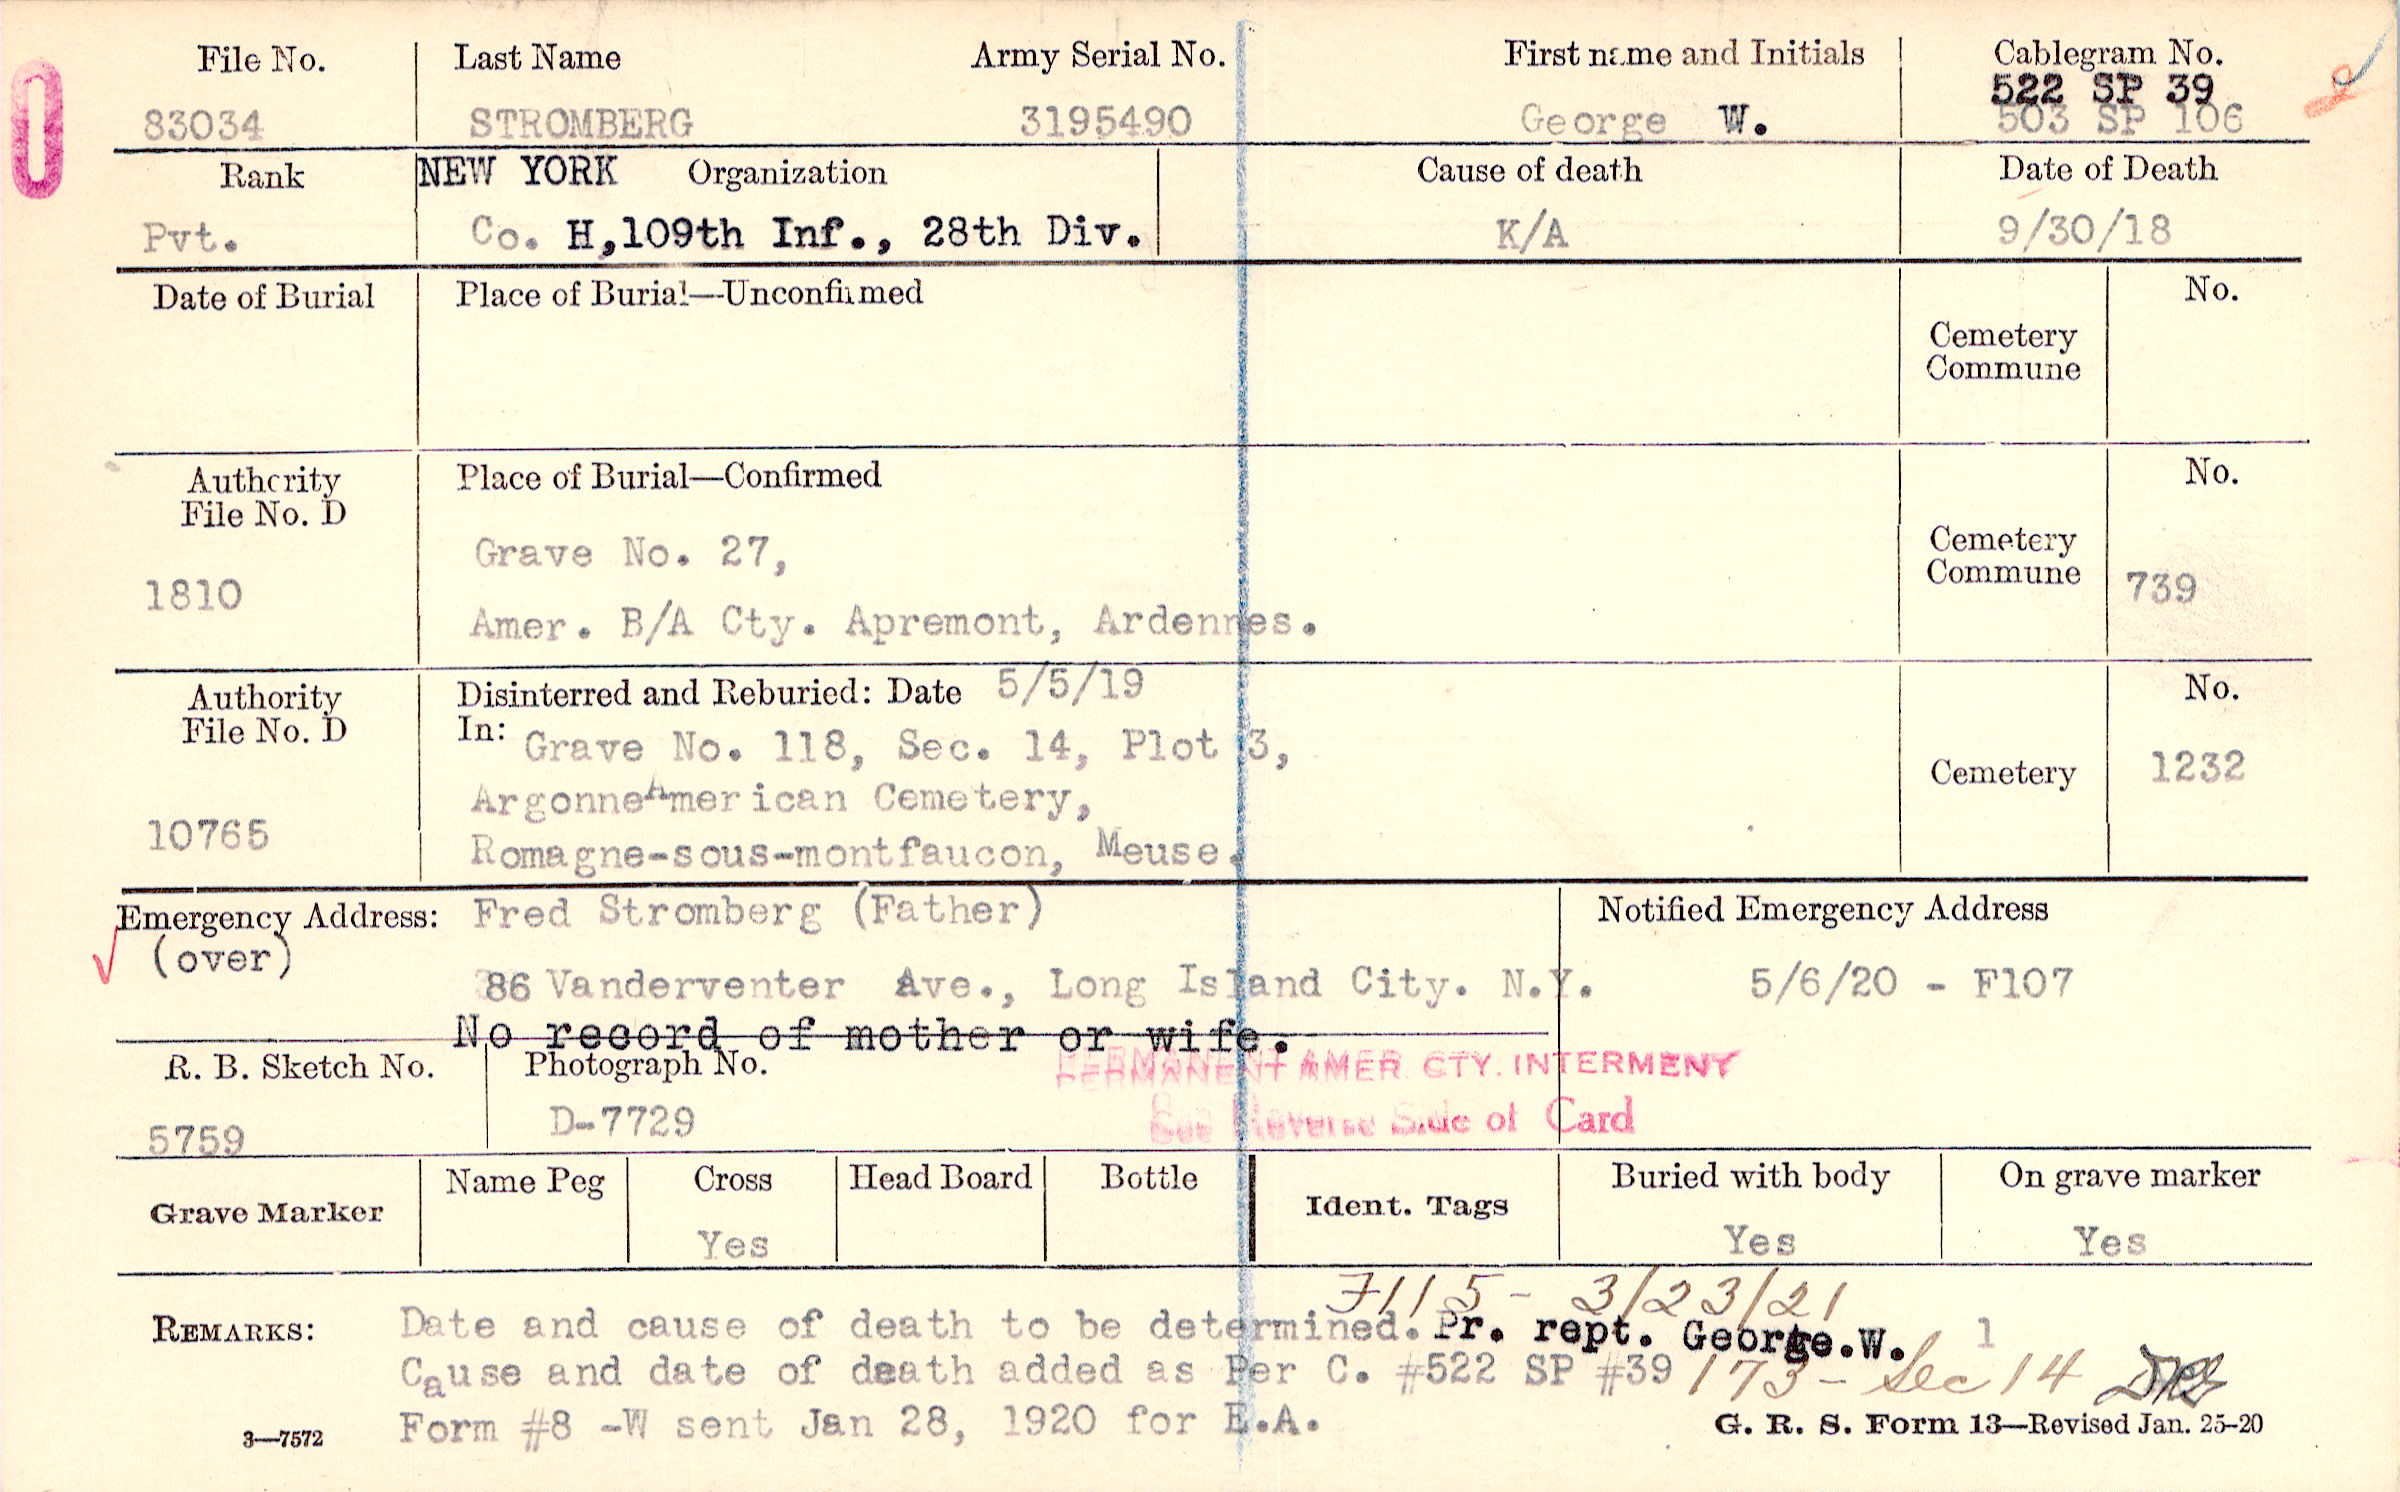 File No. Last Name Army Serial No. First name and Initials Cablegram No.
522 SP 39
83034 STROMBERG 3195490 George W. 503 SP 106
Rank NEW YORK Organization Cause of death Date of Death
Pvt. Co. H,109th Inf., 28th Div. K/A 9/30/18
Date of Burial Place of Burial—Unconfirmed No.
Cemetery
Commune
Authority Place of Burial—Confirmed No.
File No. D
Grave No. 27, Cemetery
1810 Commune 739
Amer. B/A Cty. Apremont, Ardennes.
Authority Disinterred and Reburied: Date 5/5/19 No.
File No. D In: Grave No. 118, Sec. 14, Plot 3,
Argonne American Cemetery, Cemetery 1232
10765 Romagne-sous-montfaucon, Meuse.
Emergency Address: Fred Stromberg (Father) Notified Emergency Address
(over)
86 Vanderventer Ave., Long Island City. N.Y. 5/6/20 - F107
No record of mother or wife.
R. B. Sketch No. Photograph No. PERMANENT AMER CTY. INTERMENT
5759 D-7729 See Reverse Side of Card
Grave Marker Name Peg Cross Head Board Bottle Ident. Tags Buried with body On grave marker
Yes Yes Yes
7115- 3/23/21
REMARKS: Date and cause of death to be determined. Pr. rept. George.W. 1
Cause and date of death added as Per C. #522 SP #39 173- Sec 14
Form #8 -W sent Jan 28, 1920 for E.A.
3—7572 G. R. S. Form 13—Revised Jan. 25-20